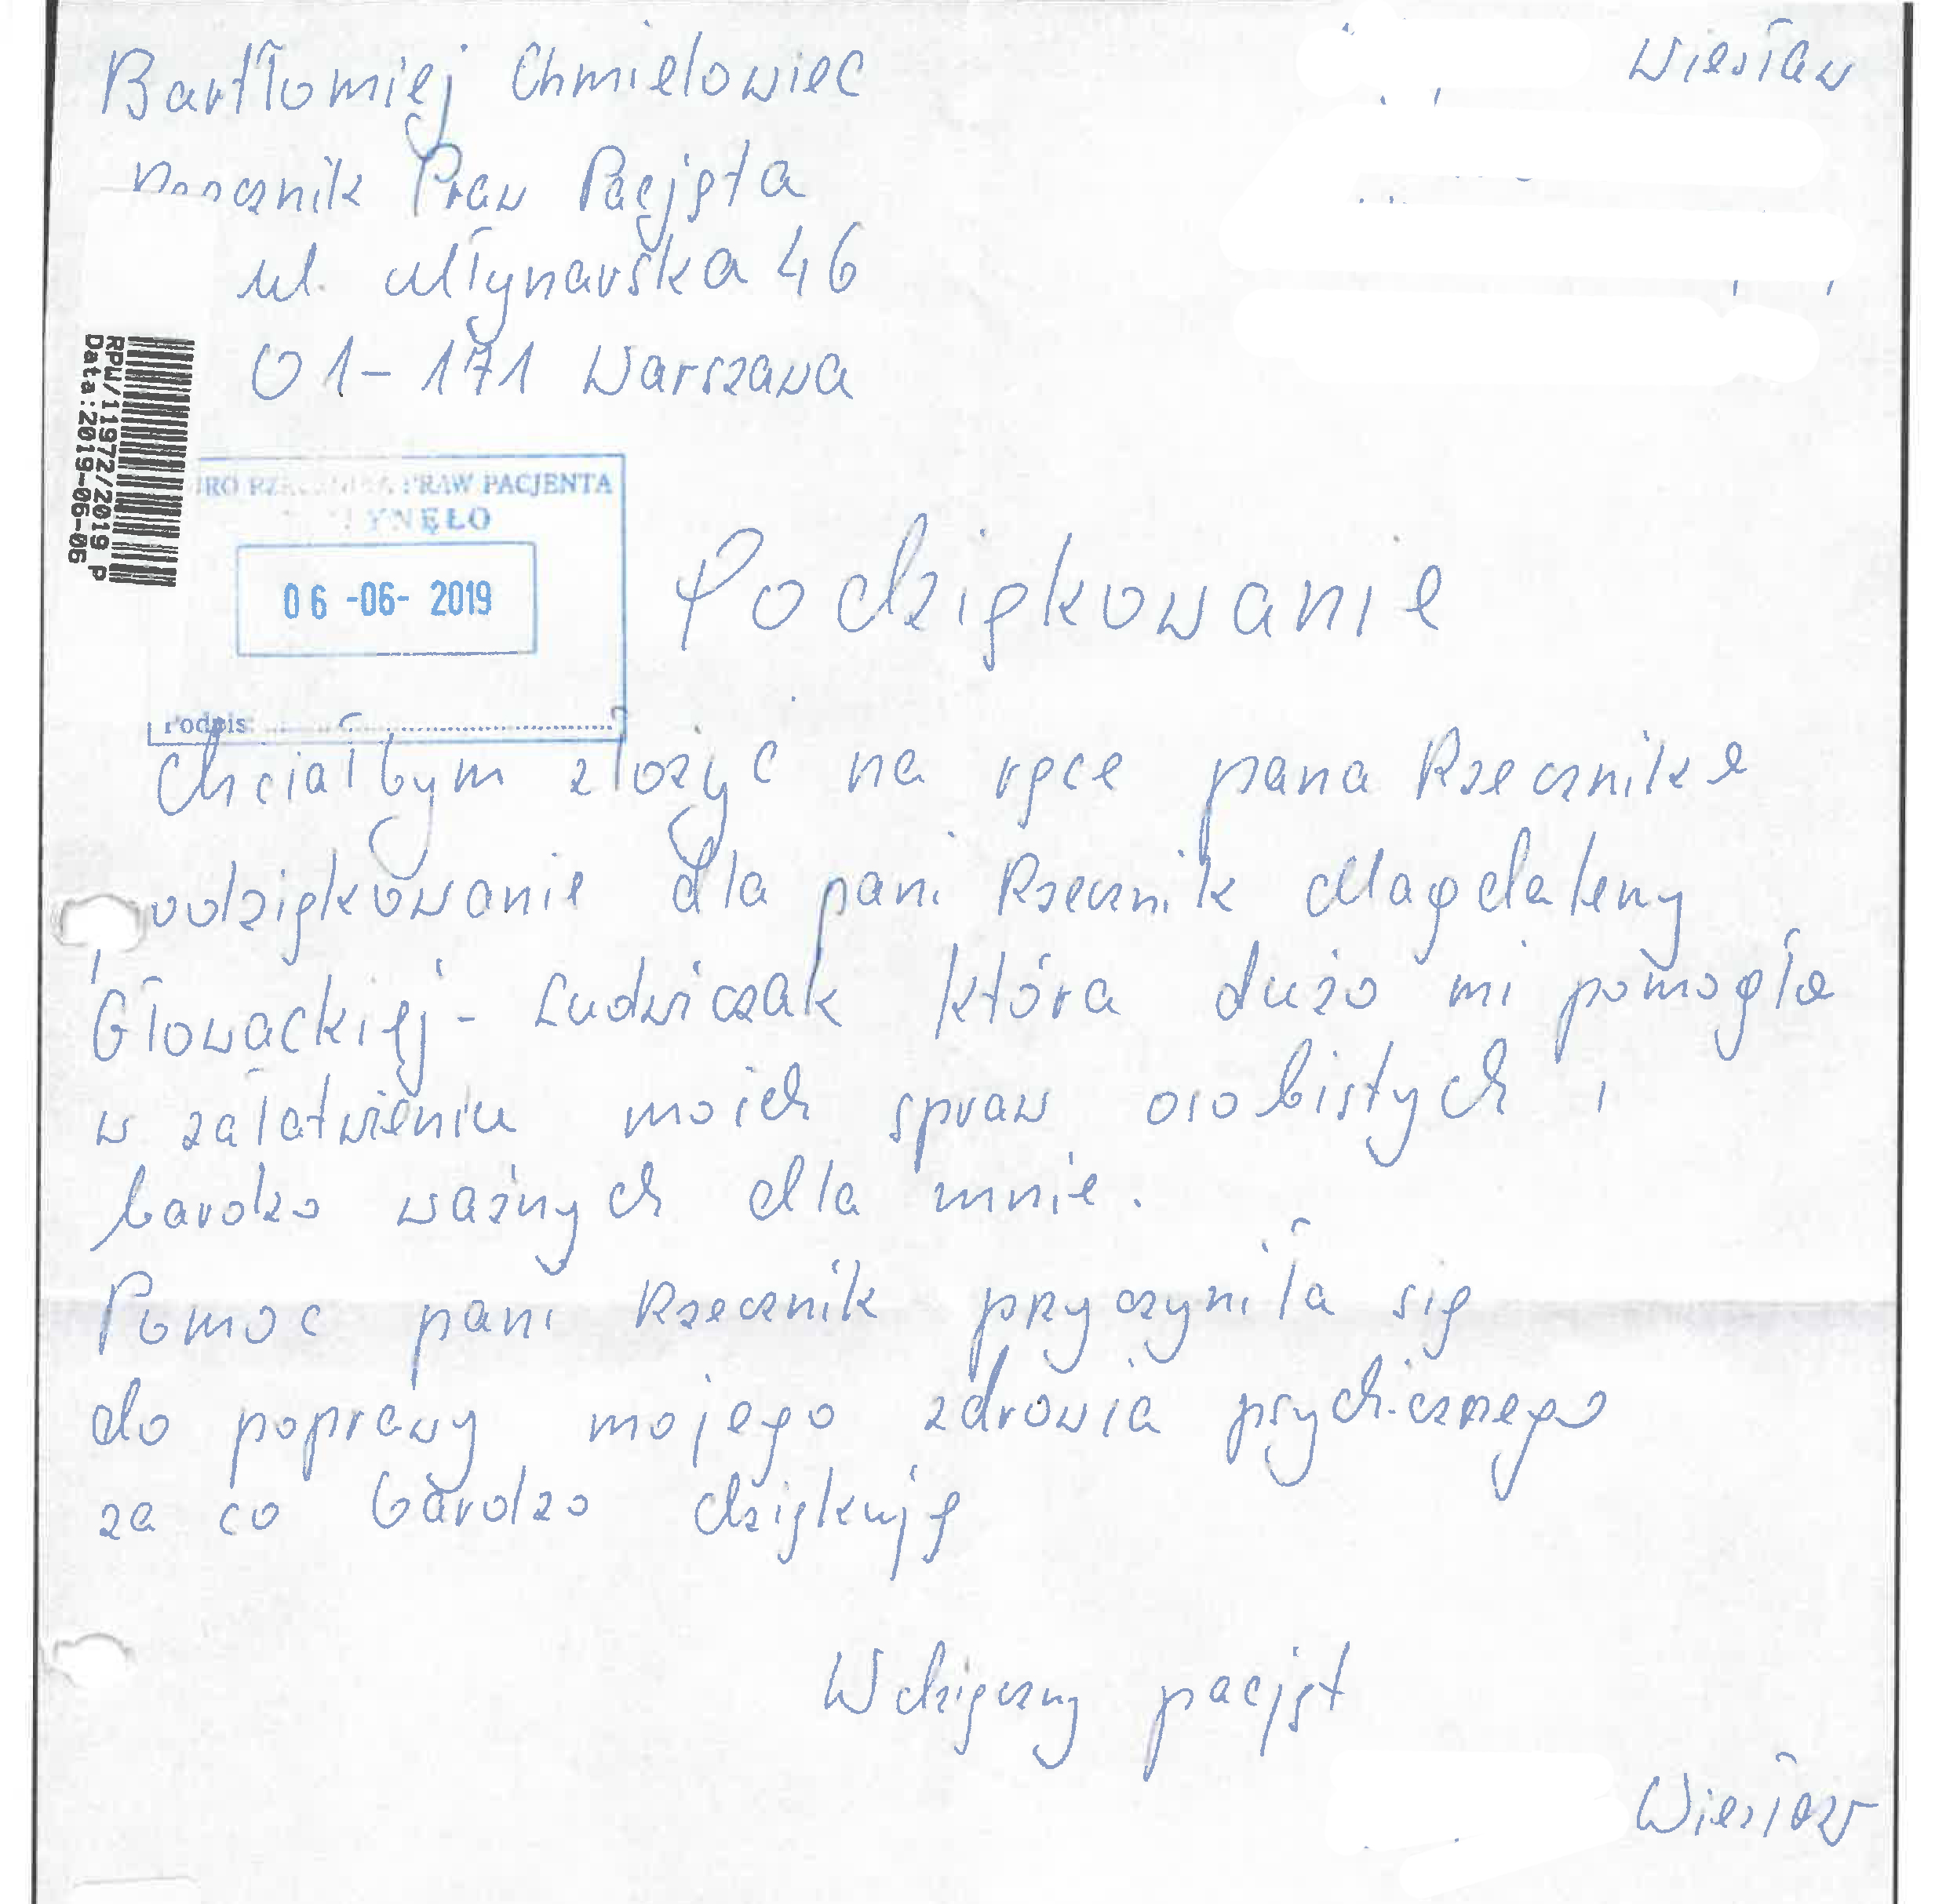 Bartłomiej Chmielowiec
Wiesław
Rzecznik Praw Pacjęta
ul. Młynarska 46
01-171 Warszawa
RPW/11972/2019 P
Data:2019-06-06
PRAW PACJENTA
06 -06- 2019
Podpis:
Podziękowanie
Chciałbym złożyć na ręce pana Rzecznika
podziękowanie dla pani Rzecznik Magdaleny
Głowackiej - Ludwiczak która dużo mi pomogła
w załatwieniu moich spraw osobistych i
bardzo ważnych dla mnie.
Pomoc pani Rzecznik przyczyniła się
do poprawy mojego zdrowia psychicznego
za co bardzo dziękuję
Wdzięczny pacjęt
Wiesław